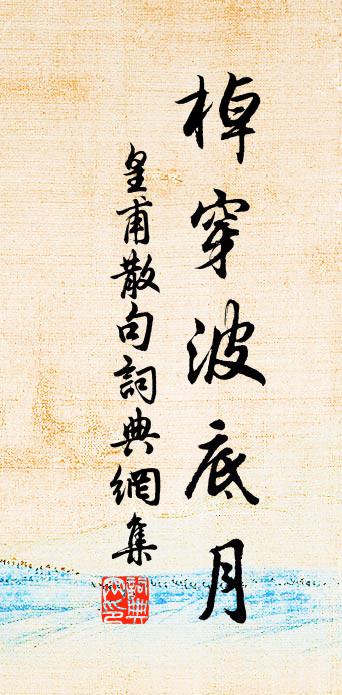 棹穿波底月
皇甫散句詞典網集